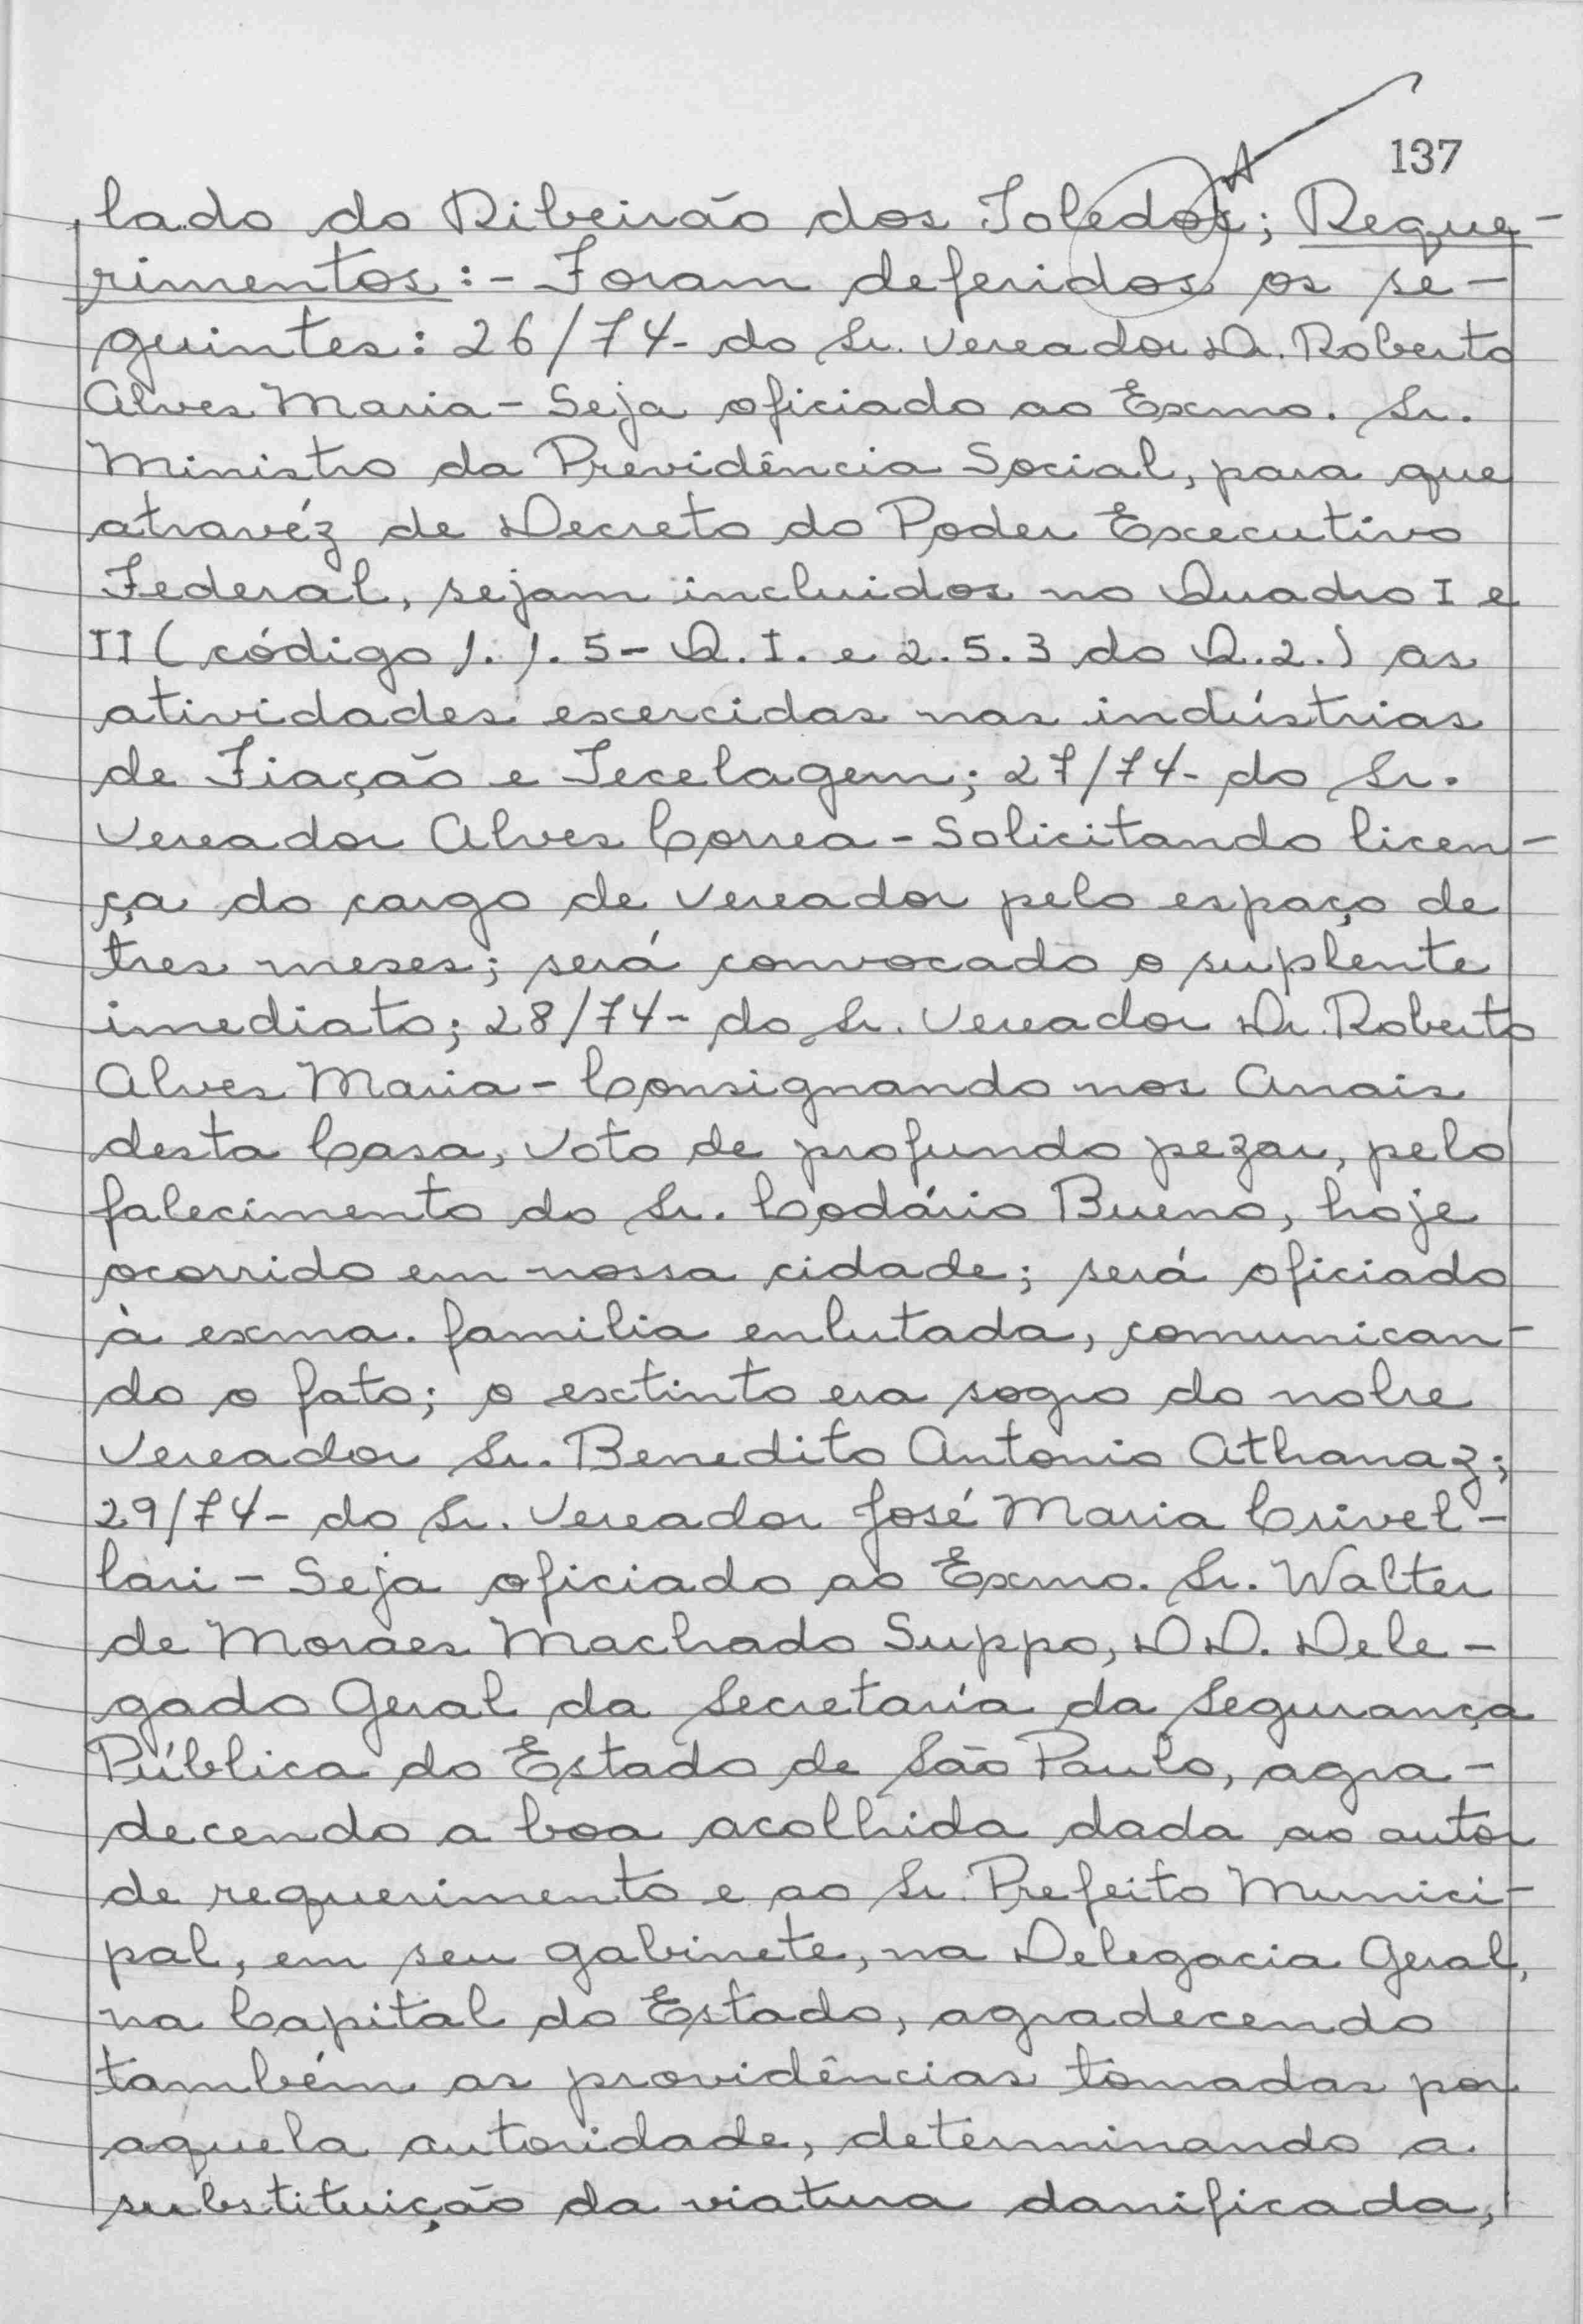 137
lado do Ribeirão dos Toledos; Reque-
rimentos:- Foram deferidos os se-
guintes: 26/74- do Sr. Vereador Dr. Roberto
Alves Maria - Seja oficiado ao Exmo. Sr.
Ministro da Previdência Social, para que
atravéz de Decreto do Poder Executivo
Federal, sejam incluidos no Quadro I e
II (código 1.1.5- Q.I. e 2.5.3 do Q.2.) as
atividades exercidas nas indústrias
de Fiação e Tecelagem; 27/74- do Sr.
Vereador Alves Correa - Solicitando licen-
ça do cargo de Vereador pelo espaço de
tres meses; será convocado o suplente
imediato; 28/74- do Sr. Vereador Dr. Roberto
Alves Maria - Consignando nos Anais
desta Casa, voto de profundo pezar, pelo
falecimento do Sr. Codário Bueno, hoje
ocorrido em nossa cidade; será oficiado
à exma. familia enlutada, comunican-
do o fato; o extinto era sogro do nobre
Vereador Sr. Benedito Antonio Athanaz;
29/74- do Sr. Vereador José Maria Crivel-
lari - Seja oficiado ao Exmo. Sr. Walter
de Moraes Machado Suppo, DD. Dele-
gado Geral da Secretaria da Segurança
Pública do Estado de São Paulo, agra-
decendo a boa acolhida dada ao autor
de requerimento e ao Sr. Prefeito Munici-
pal, em seu gabinete, na Delegacia Geral,
na Capital do Estado, agradecendo
também as providências tomadas por
aquela autoridade, determinando a
substituição da viatura danificada,